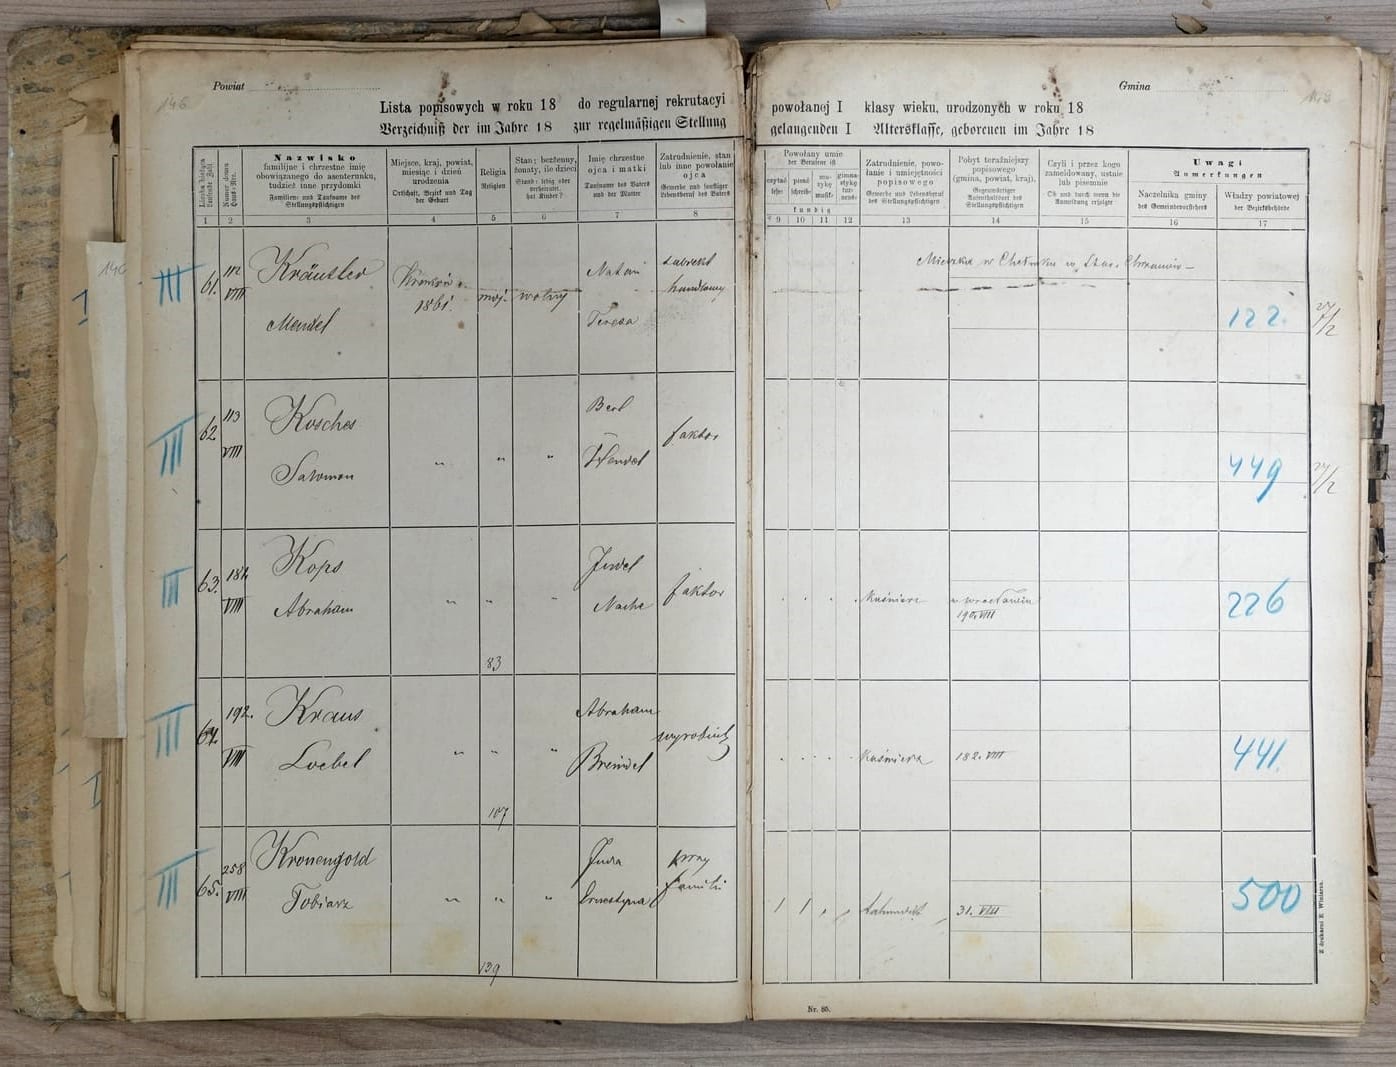 Powiat
Gmina
146
Lista popisowych w roku 18 do regularnej rekrutacyi powołanej I klasy wieku, urodzonych w roku 18
Verzeichniß der im Jahre 18 zur regelmäßigen Stellung gelangenden I Altersklasse, geborenen im Jahre 18
Liczba bieżąca
Numer domu
Haus-Nro.
Nazwisko
familijne i chrzestne imię
obowiązanego do asenterunku,
tudzież inne przydomki
Familien- und Taufname des
Stellungspflichtigen
Miejsce, kraj, powiat,
miesiąc i dzień
urodzenia
Ortschaft, Bezirk und Tag
der Geburt
Religia
Religion
Stan; bezżenny,
żonaty, ile dzieci
Stand: ledig oder
verheiratet,
hat Kinder?
Imię chrzestne
ojca i matki
Taufname des Vaters
und der Mutter
Zatrudnienie, stan
lub inne powołanie
ojca
Gewerbe und sonstiger
Lebensberuf des Vaters
Powołany umie
der Berufene ist
czytać
lesen
pisać
schreib-
mu-
zykę
musik-
gimna-
stykę
tur-
nens-
kundig
Zatrudnienie, powo-
łanie i umiejętności
popisowego
Gewerbe und Lebensberuf
des Stellungspflichtigen
Pobyt teraźniejszy
popisowego
(gmina, powiat, kraj).
Gegenwärtiger
Aufenthaltsort des
Stellungspflichtigen
Czyli i przez kogo
zameldowany, ustnie
lub pisemnie
Ob und durch wen die
Anmeldung erfolgte
Uwagi
Anmerkungen
Naczelnika gminy
des Gemeindevorstehers
Władzy powiatowej
der Bezirksbehörde
1 2 3 4 5 6 7 8 9 10 11 12 13 14 15 16 17
III 61. 112 VIII Kräutler
Mendel
Kraków
1861. moj. wolny
Natan
Teresa
handlowy
122.
III 62 113 VIII Kosches
Salomon
„ „ „
Berl
faktor
449
III 63. 182 VIII Kops
Abraham
„ „ „
Judel
Nacha
faktor
Kuśnierz
190. VIII
226
83
III 64. 192. VIII Kraus
Loebel
„ „ „
Abraham
Breindel
Kuśnierz 182. VIII
441.
107
III 65. 258 VIII Kronengold
Tobiasz
„ „ „
Juda
Ernestyna
przy
familii
31. VIII
500
139
Z drukarni E. Winiarza.
Nr. 85.